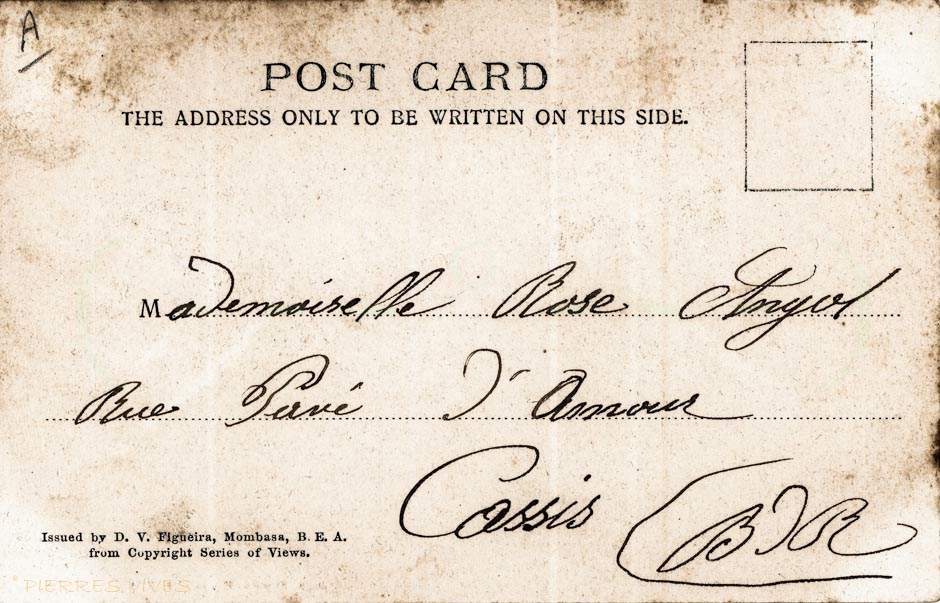 A
POST CARD
THE ADDRESS ONLY TO BE WRITTEN ON THIS SIDE.
Mademoiselle Rose
Rue Pavé d'Amour
Cassis (BdR
Issued by D. V. Figueira, Mombasa, B. E. A.
from Copyright Series of Views.
PIERRES VIVES